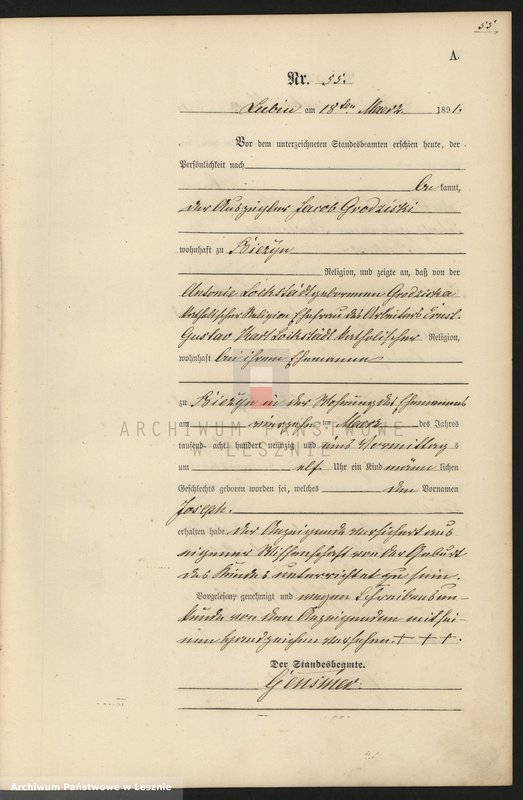 55
A.
Nr. 55.
Lubin am 18ten Maerz 1891.
Vor dem unterzeichneten Standesbeamten erschien heute, der
Persönlichkeit nach
be kannt,
der Auszügler Jacob Grodziski
wohnhaft zu Bieżyn
Religion, und zeigte an, daß von der
Antonie Lockstädt geborenen Grodziska
katholischer Religion Ehefrau des Arbeiters Ernst
Gustav Karl Lockstädt katholischer Religion,
wohnhaft bei ihrem Ehemanne
zu Bieżyn in der Wohnung des Ehemannes
am vierzehn ten Maerz des Jahres
tausend acht hundert neunzig und eins Vormittag s
um elf Uhr ein Kind männ lichen
Geschlechts geboren worden sei, welches den Vornamen
Joseph.
erhalten habe. der Anzeigende versichert aus
eigener Wissenschaft von der Geburt
des Kindes unterrichtet zu sein.
Vorgelesen, genehmigt und wegen Schreibensun-
kunde von dem Anzeigenden mit sei-
nem Handzeichen versehen. + + +.
Der Standesbeamte.
Gensmer.
ARCHIWUM PAŃSTWOWE
W LESZNIE
Archiwum Państwowe w Lesznie